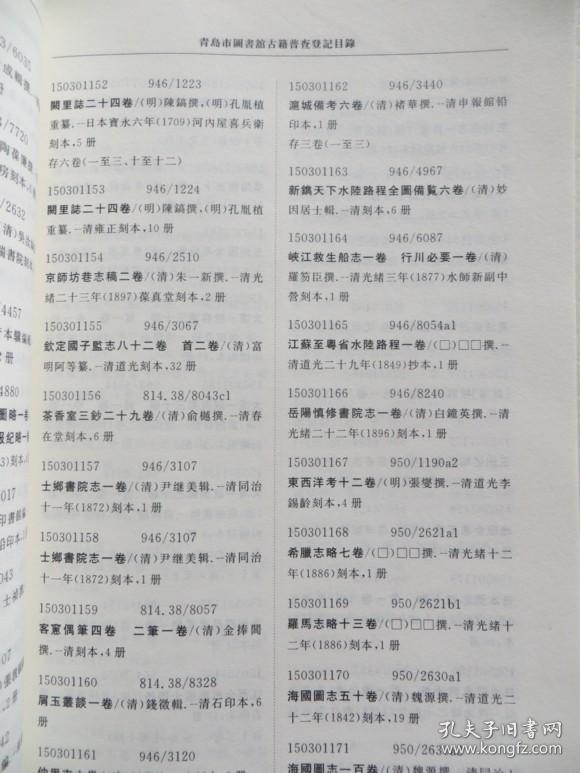 青島市圖書館古籍普查登記目錄
150301152 946/1223
闕里誌二十四卷/(明)陳鎬撰,(明)孔胤植
重纂.—日本寶永六年(1709)河內屋喜兵衛
刻本,5 册
存六卷(一至三、十至十二)
150301153 946/1224
闕里誌二十四卷/(明)陳鎬撰,(明)孔胤植
重纂.—清雍正刻本,10 册
150301154 946/2510
京師坊巷志稿二卷/(清)朱一新撰.—清光
緒二十三年(1897)葆真堂刻本,2 册
150301155 946/3067
欽定國子監志八十二卷 首二卷/(清)富
明阿等纂.—清道光刻本,32 册
150301156 814.38/8043c1
茶香室三鈔二十九卷/(清)俞樾撰.—清春
在堂刻本,6 册
150301157 946/3107
士鄉書院志一卷/(清)尹继美辑.—清同治
十一年(1872)刻本,1 册
150301158 946/3107
士鄉書院志一卷/(清)尹继美辑.—清同治
十一年(1872)刻本,1 册
150301159 814.38/8057
客窻偶筆四卷 二筆一卷/(清)金捧閶
撰.—清刻本,4 册
150301160 814.38/8328
屑玉叢談一卷/(清)錢徵輯.—清石印本,6
册
150301161 946/3120
150301162 946/4440
滬城備考六卷/(清)褚華撰.—清申報館铅
印本,1 册
存三卷(一至三)
150301163 946/4967
新鐫天下水陸路程全圖備覧六卷/(清)妙
因居士輯.—清刻本,6 册
150301164 946/6087
峽江救生船志一卷 行川必要一卷/(清)
羅笏臣撰.—清光緒三年(1877)水師新副中
營刻本,1 册
150301165 946/8054a1
江蘇至粤省水陸路程一卷/(□)□□撰.—
清道光二十九年(1849)抄本,1 册
150301166 946/8240
岳陽慎修書院志一卷/(清)白鐘英撰.—清
光緒二十二年(1896)刻本,1 册
150301167 950/1190a2
東西洋考十二卷/(明)張燮撰.—清道光李
錫齡刻本,4 册
150301168 950/2621a1
希臘志略七卷/(□)□□撰.—清光緒十二
年(1886)刻本,1 册
150301169 950/2621b1
羅馬志略十三卷/(□)□□撰.—清光緒十
二年(1886)刻本,1 册
150301170 950/2630a1
海國圖志五十卷/(清)魏源撰.—清道光二
十二年(1842)刻本,19 册
海國圖志一百卷/(清)魏源撰.—清
孔夫子旧书网